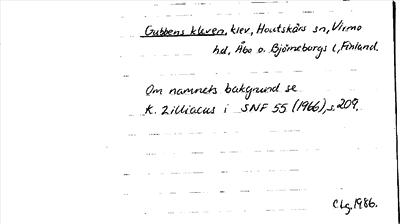 Gubbens kleven, klev, Houtskärs sn, Virmo
hd, Åbo o. Björneborgs l, Finland.
Om namnets bakgrund se
K. Zilliacus i SNF 55 (1966), s. 209.
CLg. 1986.